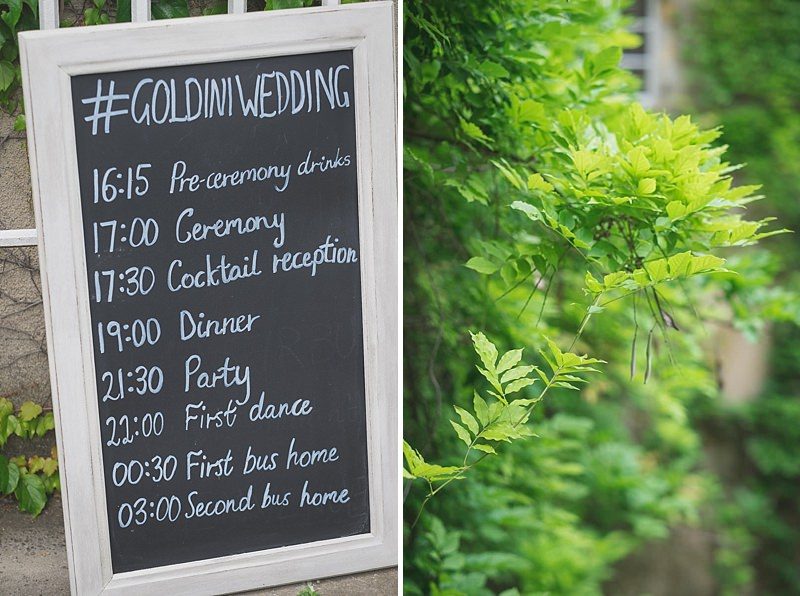 #GOLDINIWEDDING
16:15 Pre-ceremony drinks
17:00 Ceremony
17:30 Cocktail reception
19:00 Dinner
21:30 Party
22:00 First dance
00:30 First bus home
03:00 Second bus home